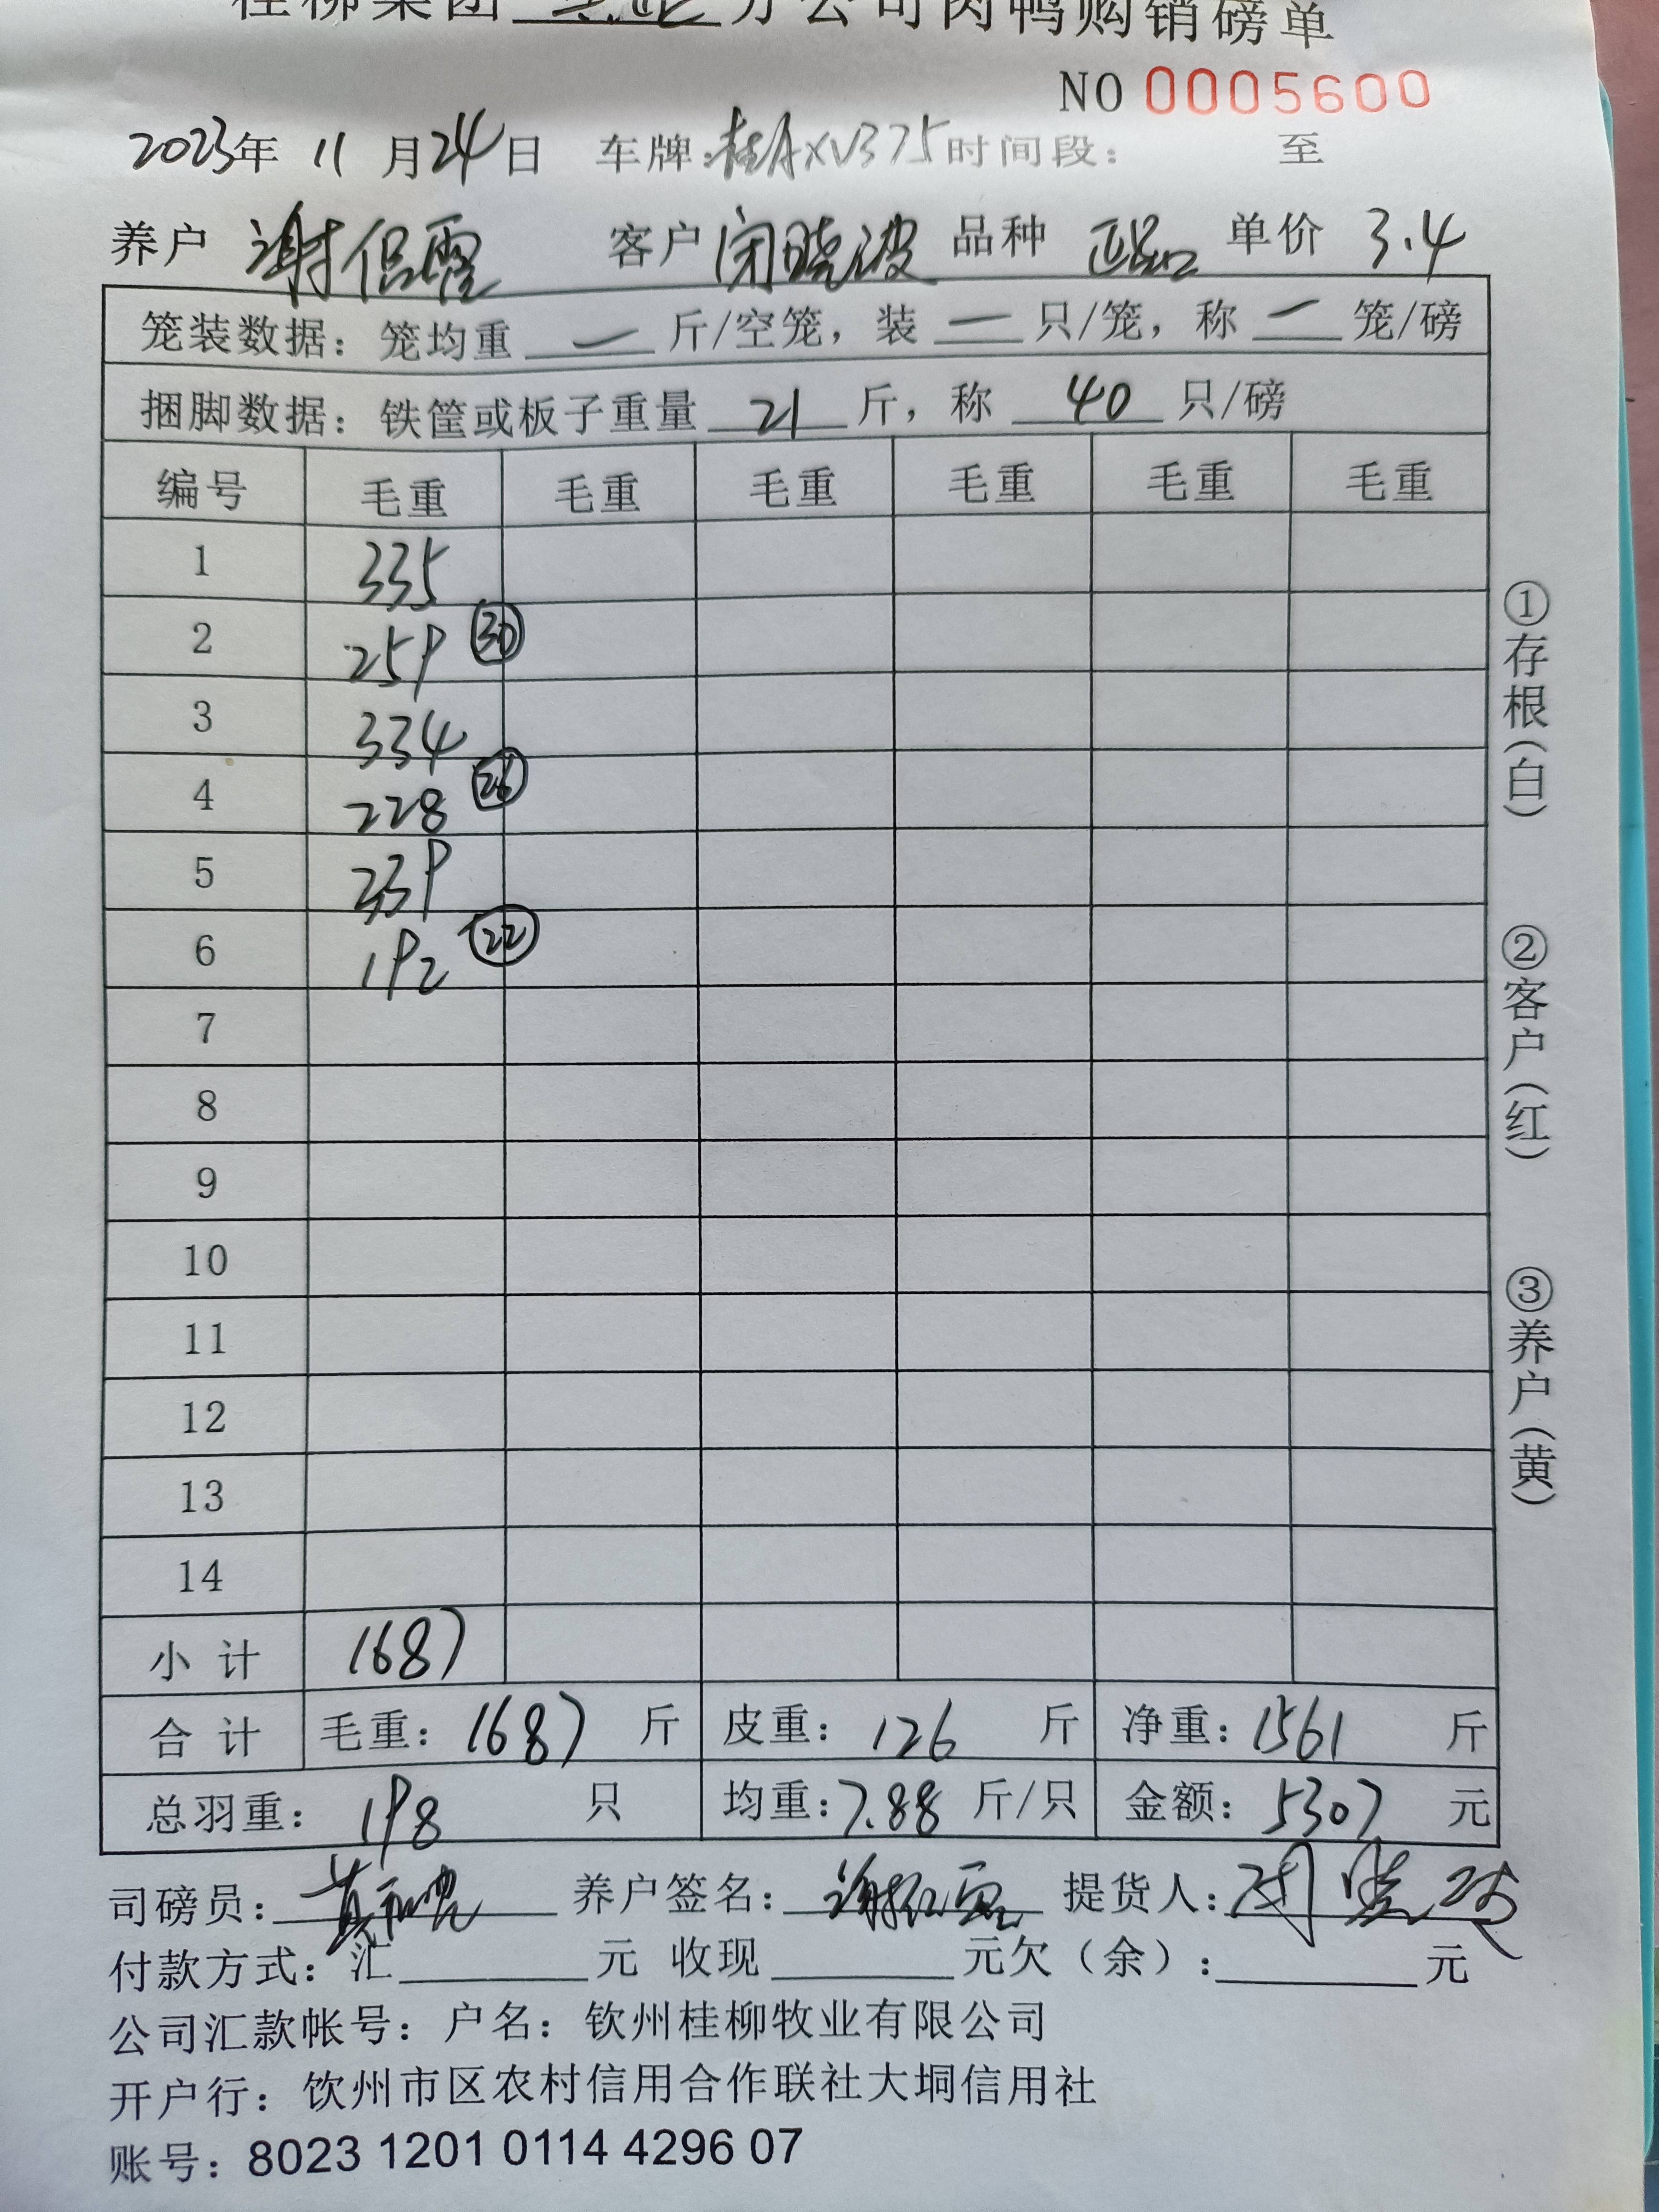 桂柳集团 分公司肉鸭购销磅单
NO 0005600
2023年 11 月 24 日 车牌:桂AXV375 时间段: 至
养户 谢 客户 闭晓波 品种 正品 单价 3.4
笼装数据: 笼均重 一 斤/空笼, 装 一 只/笼, 称 一 笼/磅
捆脚数据: 铁筐或板子重量 21 斤, 称 40 只/磅
编号 毛重 毛重 毛重 毛重 毛重 毛重
1 335
2 259 30
3 334
4 228 26
5 339
6 192 22
7
8
9
10
11
12
13
14
小 计 1687
合 计 毛重: 1687 斤 皮重: 126 斤 净重: 1561 斤
总羽重: 198 只 均重: 7.88 斤/只 金额: 5307 元
司磅员: 养户签名: 提货人: 闭晓波
付款方式: 汇 元 收现 元欠(余): 元
公司汇款帐号: 户名: 钦州桂柳牧业有限公司
开户行: 钦州市区农村信用合作联社大垌信用社
账号: 8023 1201 0114 4296 07
①存根(白)
②客户(红)
③养户(黄)